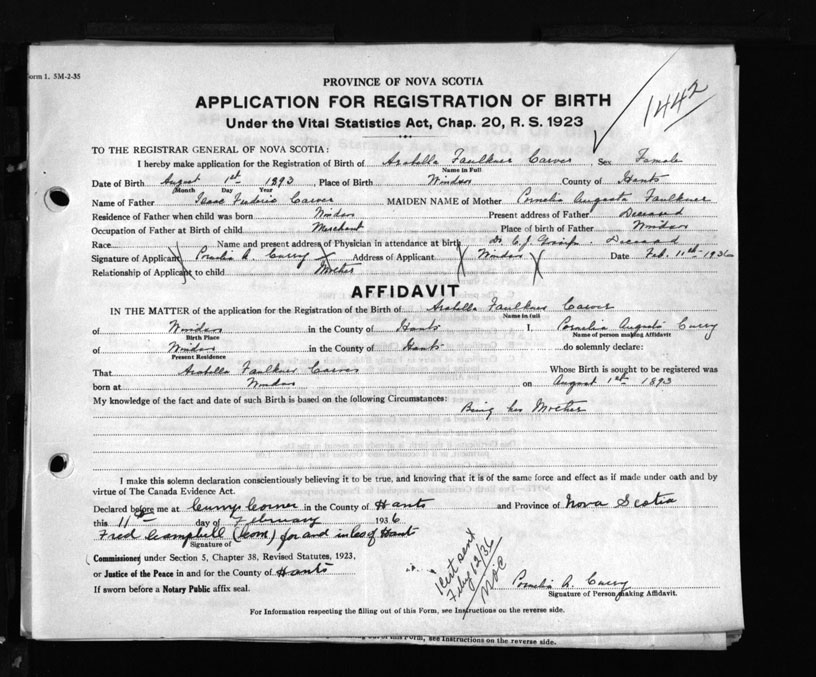 orm 1. 5M-2-35
PROVINCE OF NOVA SCOTIA
APPLICATION FOR REGISTRATION OF BIRTH
Under the Vital Statistics Act, Chap. 20, R. S. 1923
1442
TO THE REGISTRAR GENERAL OF NOVA SCOTIA:
I hereby make application for the Registration of Birth of Arabella Faulkner Carver Sex Female
Name in Full
Date of Birth August 1st 1893, Place of Birth Windsor County of Hants
Month Day Year
Name of Father Isaac Carver MAIDEN NAME of Mother Cornelia Augusta Faulkner
Residence of Father when child was born Windsor Present address of Father Deceased
Occupation of Father at Birth of child Merchant Place of birth of Father Windsor
Race Name and present address of Physician in attendance at birth Dr. C. J. Deceased
Signature of Applicant Cornelia A. Curry Address of Applicant Windsor Date Feb. 11th 1936
Relationship of Applicant to child Mother
AFFIDAVIT
IN THE MATTER of the application for the Registration of the Birth of Arabella Faulkner Carver
Name in full
of Windsor in the County of Hants I, Cornelia Augusta Curry
Birth Place Name of person making Affidavit
of Windsor in the County of Hants do solemnly declare:
Present Residence
That Arabella Faulkner Carver Whose Birth is sought to be registered was
born at Windsor on August 1st 1893
My knowledge of the fact and date of such Birth is based on the following Circumstances:
Being her Mother
I make this solemn declaration conscientiously believing it to be true, and knowing that it is of the same force and effect as if made under oath and by
virtue of The Canada Evidence Act.
Declared before me at Curry Corner in the County of Hants and Province of Nova Scotia
this 11th day of February 1936
Fred Campbell (Com) for and in Co of Hants
Signature of
Commissioned under Section 5, Chapter 38, Revised Statutes, 1923,
or Justice of the Peace in and for the County of Hants
If sworn before a Notary Public affix seal.
1 cert sent
Feby 12/36
Cornelia A. Curry
Signature of Person making Affidavit.
For Information respecting the filling out of this Form, see Instructions on the reverse side.
ing out of this Form, see Instructions on the reverse side.